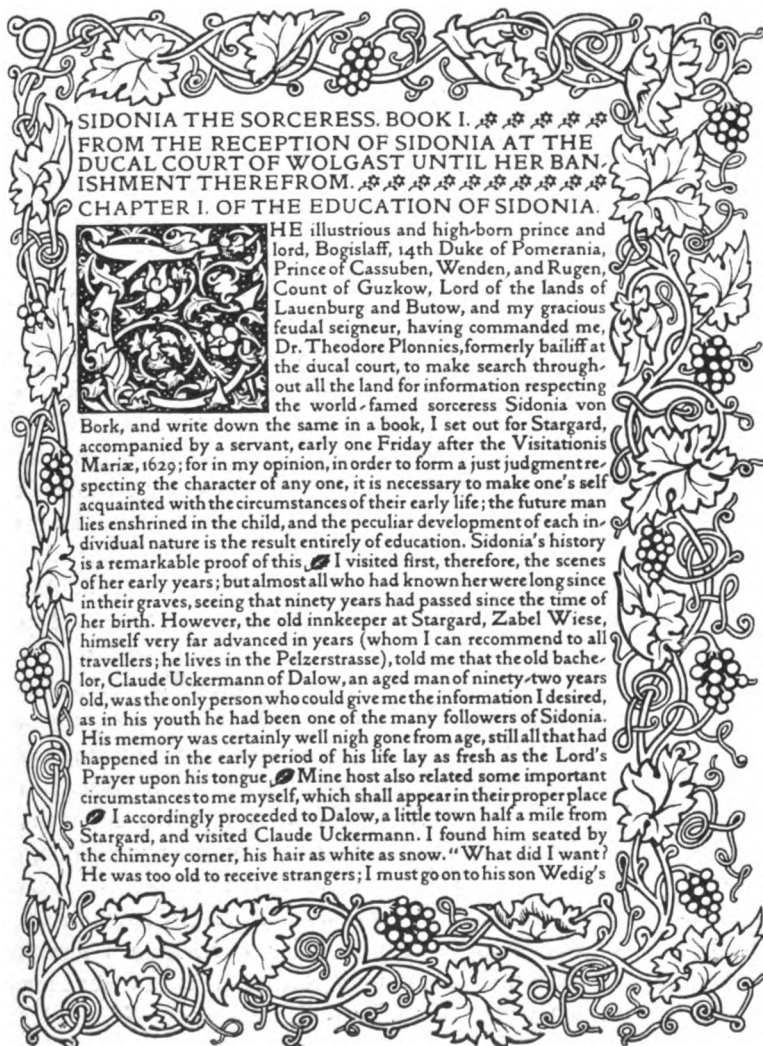 SIDONIA THE SORCERESS. BOOK I.
FROM THE RECEPTION OF SIDONIA AT THE
DUCAL COURT OF WOLGAST UNTIL HER BAN-
ISHMENT THEREFROM.
CHAPTER I. OF THE EDUCATION OF SIDONIA.
THE illustrious and high-born prince and
lord, Bogislaff, 14th Duke of Pomerania,
Prince of Cassuben, Wenden, and Rugen,
Count of Guzkow, Lord of the lands of
Lauenburg and Butow, and my gracious
feudal seigneur, having commanded me,
Dr. Theodore Plonnies, formerly bailiff at
the ducal court, to make search through-
out all the land for information respecting
the world-famed sorceress Sidonia von
Bork, and write down the same in a book, I set out for Stargard,
accompanied by a servant, early one Friday after the Visitationis
Mariæ, 1629; for in my opinion, in order to form a just judgment re-
specting the character of any one, it is necessary to make one's self
acquainted with the circumstances of their early life; the future man
lies enshrined in the child, and the peculiar development of each in-
dividual nature is the result entirely of education. Sidonia's history
is a remarkable proof of this I visited first, therefore, the scenes
of her early years; but almost all who had known her were long since
in their graves, seeing that ninety years had passed since the time of
her birth. However, the old innkeeper at Stargard, Zabel Wiese,
himself very far advanced in years (whom I can recommend to all
travellers; he lives in the Pelzerstrasse), told me that the old bache-
lor, Claude Uckermann of Dalow, an aged man of ninety-two years
old, was the only person who could give me the information I desired,
as in his youth he had been one of the many followers of Sidonia.
His memory was certainly well nigh gone from age, still all that had
happened in the early period of his life lay as fresh as the Lord's
Prayer upon his tongue Mine host also related some important
circumstances to me myself, which shall appear in their proper place
I accordingly proceeded to Dalow, a little town half a mile from
Stargard, and visited Claude Uckermann. I found him seated by
the chimney corner, his hair as white as snow. "What did I want?
He was too old to receive strangers; I must go on to his son Wedig's